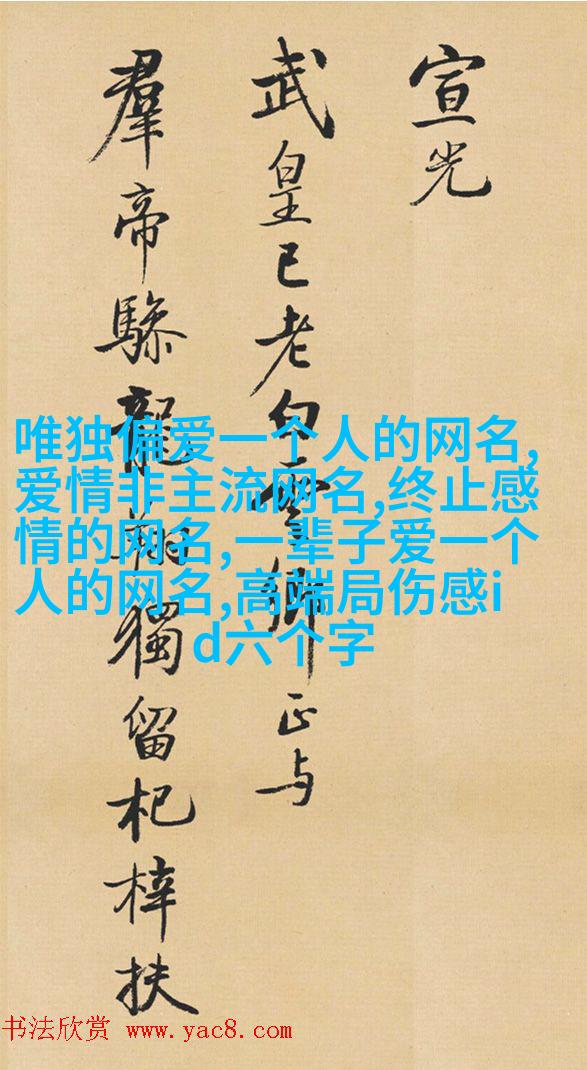 宣光
武皇已老白雲鄉正与
羣帝驂龍翔獨留杞梓扶
唯独偏爱一个人的网名,
爱情非主流网名,终止感
情的网名,一辈子爱一个
人的网名,高端局伤感i
d六个字
书法欣赏 www.yac8.com